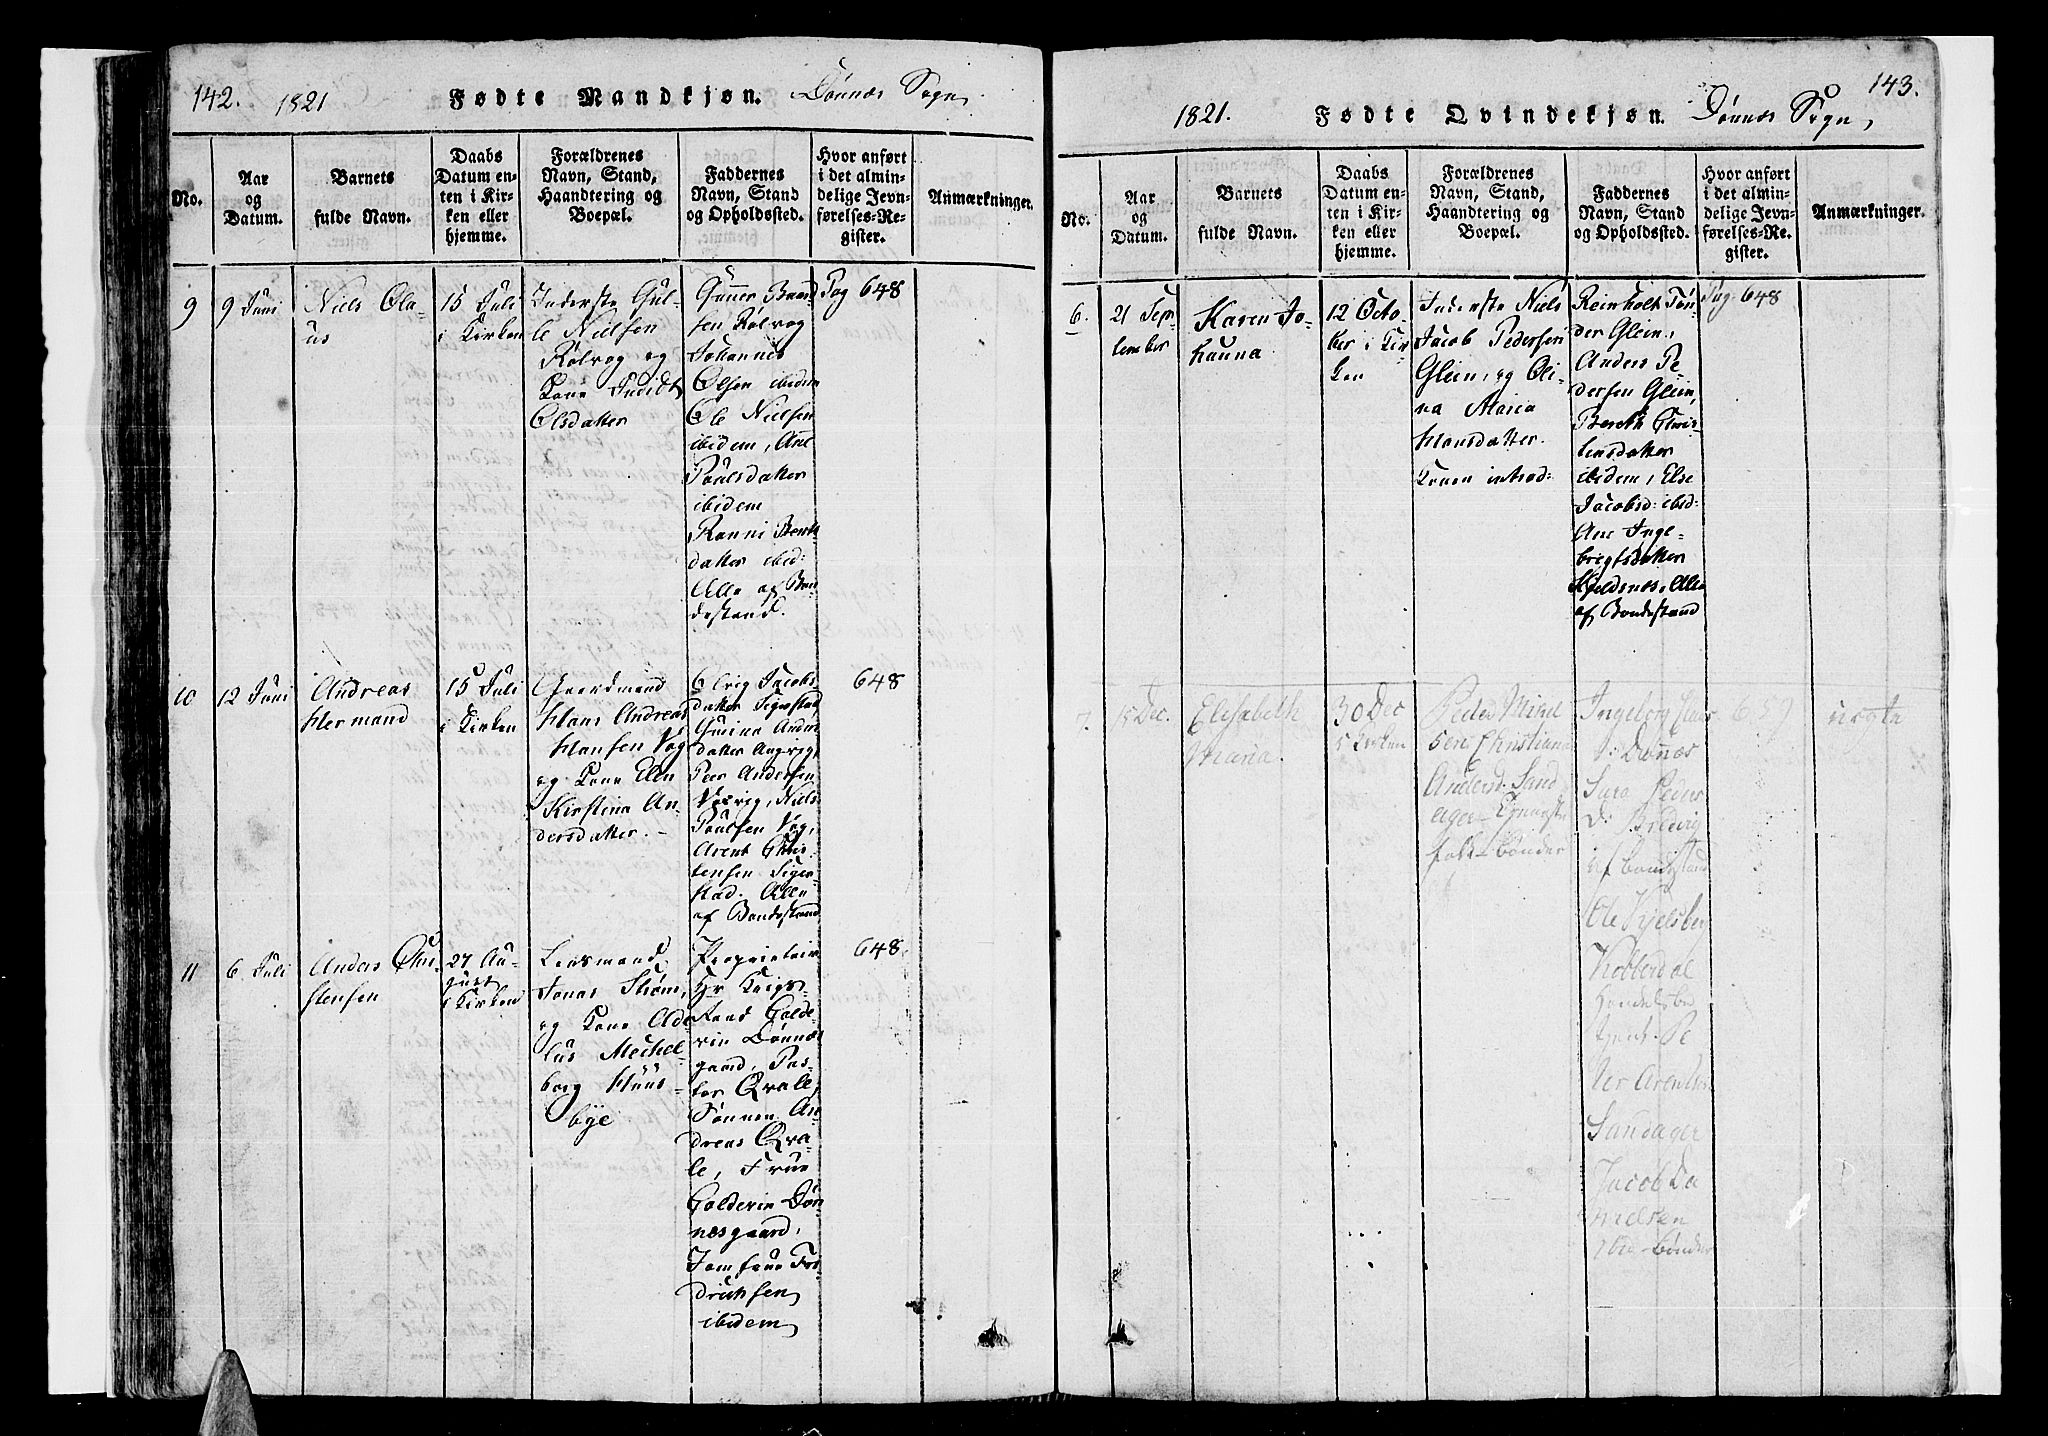 142. 1821 Fødte Mandkjøn. Dønnæs Sogn
No.
Aar
og
Datum.
Barnets
fulde Navn.
Daabs
Datum en-
ten i Kir-
ken eller
hjemme.
Forældrenes
Navn, Stand,
Haandtering og
Boepæl.
Faddernes
Navn, Stand
og Opholdssted.
Hvor anført
i det almin-
delige Jevn-
førelses-Re-
gister.
Anmærkninger.
9
9 Juni
Niels Ola-
us
15 Juli
i Kirken
Inderste Gul-
le Nielsen
Rølvog og
Kone Judidt
Olsdatter
Gunner Baard
sen Rølvog
Johannes
Olsen ibidem
Ole Nielsen
ibidem, Ane
Poulsdatter
ibidem
Ranni Bent
datter ibid:
Alle af Bon-
destand.
Pag 648
10
12 Juni
Andreas
Hermand
15 Juli
i Kirken
Gaardmand
Hans Andreas
Hansen Vog
og Kone Elen
Kirstina An-
dersdatter.
Jacobs-
datter
Anders
datter
Peer Andersen
Niels
Poulsen Vog,
Arent Chris-
tensen
Alle
af Bondestand
648
11
6 Juli
Anders Chri-
stensen
27 Au-
gust
i Kirken
Lensmand
Jonas Strøm,
og Kone Ade-
lus Mechel-
borg Huus-
bye
Proprietair
Hr Krigs-
raad Colde-
vin Dønnæs
gaard, Pas-
tor Qvale,
Sønnen An-
dreas Qva-
le, Frue
Coldevin Døn-
næsgaard,
Jomfrue Fri-
drichsen
ibidem
648.
143.
1821. Fødte Qvindekjøn. Dønnæs Sogn
No.
Aar
og
Datum.
Barnets
fulde Navn.
Daabs
Datum en-
ten i Kir-
ken eller
hjemme.
Forældrenes
Navn, Stand,
Haandtering og
Boepæl.
Faddernes
Navn, Stand
og Opholdssted.
Hvor anført
i det almin-
delige Jevn-
førelses-Re-
gister.
Anmærkninger.
6.
21 Sep-
tember
Karen Jo-
hanna
12 Octo-
ber i Kir-
ken
Inderste Niels
Jacob Pedersen
Glein, og Oli-
na Maria
Hansdatter.
Konen introd:
Reinholt Tøn-
der Glein,
Anders Pe-
dersen Glein,
Bereth Chris-
tensdatter
ibidem, Else
Jacobsd: ibid:
Ane Inge-
brigtsdatter
Kjeldnes, Alle
af Bondestand
Pag: 648
7.
15 Dec.
Elisabeth
Maria.
30 Dec
i Kirken
Peder Mikel
sen Christiana
Andersd. Sand
ager
folk - Bønder
Ingeborg
Dønæs
Sara Peders
D:
af bondestand
Ole Kjelsberg
Kobberdal
Handelsbe
tjent. Pe
ter Arentsen
Sandager
Jacob Da
nielsen
bønder
657
uægte